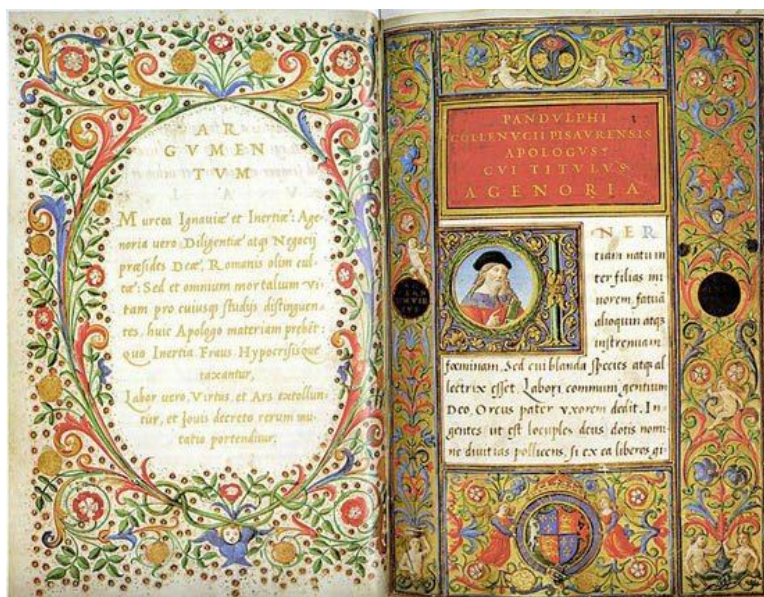 AR
GVMEN
TVM
Murcea Ignauiæ et Inertiæ: Age-
noria uero Diligentiæ atqꝫ Negocij
præsides Deæ, Romanis olim cul-
tæ: Sed et omnium mortalium vi-
tam pro cuiusqꝫ studijs distinguen-
tes, huic Apologo materiam prebēt:
quo Inertia Fraus Hypocrisisque
taxantur,
Labor uero, Virtus, et Ars extollun-
tur, et Iouis decreto rerum mu-
tatio portenditur.
PANDVLPHI
COLLENVCII PISAVRENSIS
APOLOGVS
CVI TITVLVS
AGENORIA
INER
tiam natu in
ter filias mi
norem, fatuā
alioquin atqꝫ
instrenuam
fœminam, Sed cui blanda species atqꝫ al
lectrix esset, Labori communi gentium
Deo, Orcus pater vxorem dedit, In-
gentes ut est locuples deus dotis nomi
ne diuitias pollicens, si ex ea liberos gi-